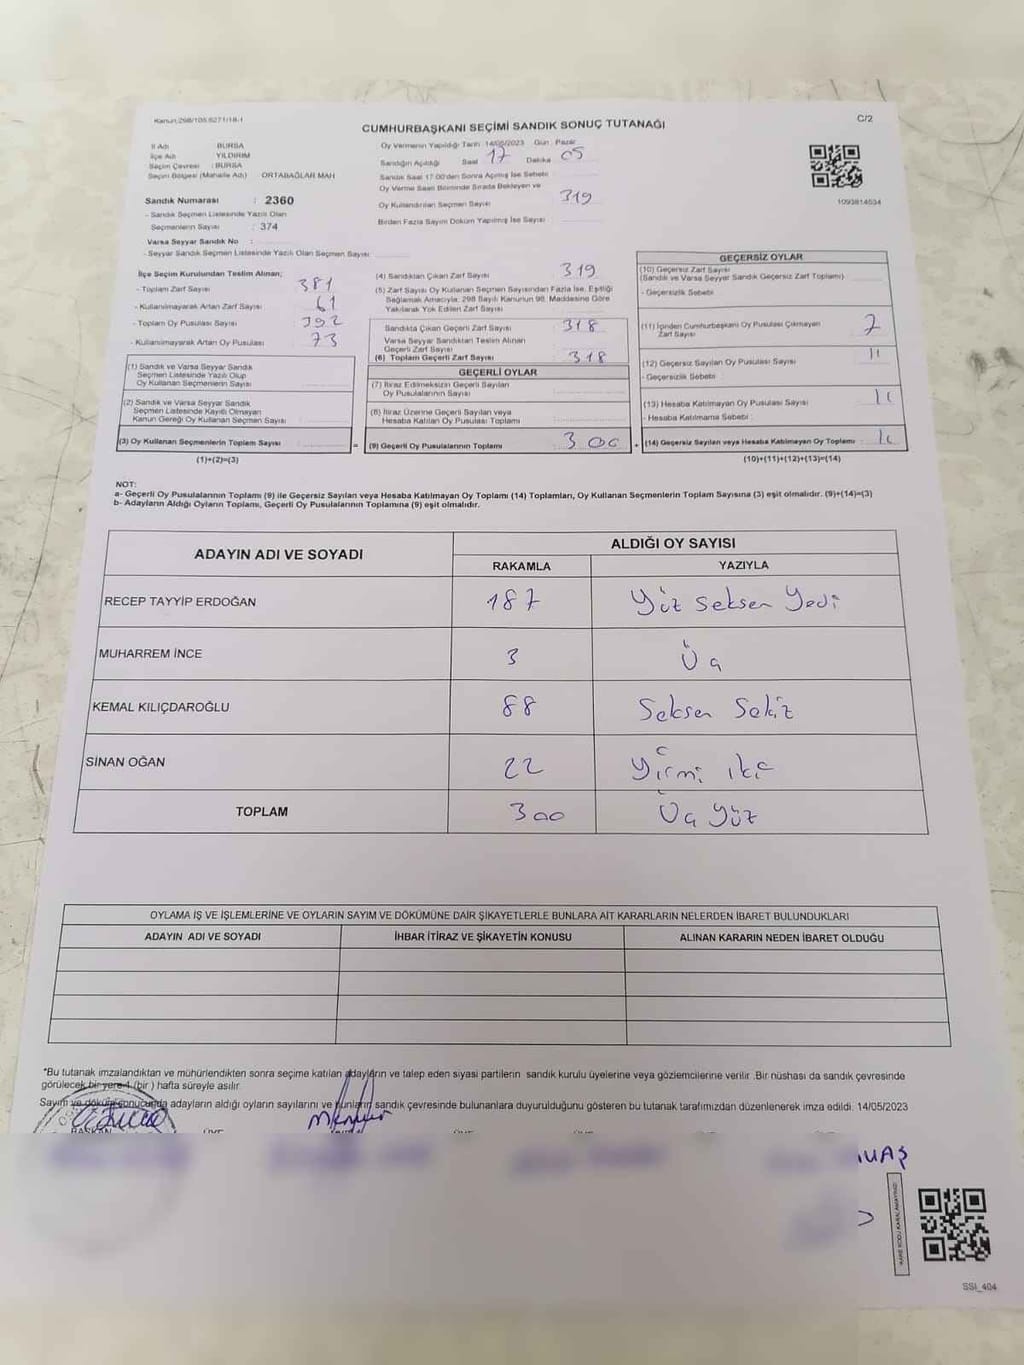 Kanun:298/105,6271/18-1
C/2
CUMHURBAŞKANI SEÇİMİ SANDIK SONUÇ TUTANAĞI
İl Adı BURSA
İlçe Adı YILDIRIM
Seçim Çevresi : BURSA
Seçim Bölgesi (Mahalle Adı) ORTABAĞLAR MAH
Sandık Numarası : 2360
- Sandık Seçmen Listesinde Yazılı Olan
Seçmenlerin Sayısı : 374
Varsa Seyyar Sandık No :
- Seyyar Sandık Seçmen Listesinde Yazılı Olan Seçmen Sayısı
Oy Vermenin Yapıldığı Tarih 14/05/2023 Gün Pazar
Sandığın Açıldığı Saat 17 Dakika 05
Sandık Saat 17:00'den Sonra Açılmış İse Sebebi
Oy Verme Saati Bitiminde Sırada Bekleyen ve
Oy Kullandırılan Seçmen Sayısı 319
Birden Fazla Sayım Döküm Yapılmış İse Sayısı
1093814034
İlçe Seçim Kurulundan Teslim Alınan;
- Toplam Zarf Sayısı 381
- Kullanılmayarak Artan Zarf Sayısı 61
- Toplam Oy Pusulası Sayısı 392
- Kullanılmayarak Artan Oy Pusulası 73
(1) Sandık ve Varsa Seyyar Sandık
Seçmen Listesinde Yazılı Olup
Oy Kullanan Seçmenlerin Sayısı
(2) Sandık ve Varsa Seyyar Sandık
Seçmen Listesinde Kayıtlı Olmayan
Kanun Gereği Oy Kullanan Seçmen Sayısı
(3) Oy Kullanan Seçmenlerin Toplam Sayısı
=
(1)+(2)=(3)
(4) Sandıktan Çıkan Zarf Sayısı 319
(5) Zarf Sayısı Oy Kullanan Seçmen Sayısından Fazla İse, Eşitliği
Sağlamak Amacıyla, 298 Sayılı Kanunun 98. Maddesine Göre
Yakılarak Yok Edilen Zarf Sayısı
Sandıkta Çıkan Geçerli Zarf Sayısı 318
Varsa Seyyar Sandıktan Teslim Alınan
Geçerli Zarf Sayısı
(6) Toplam Geçerli Zarf Sayısı 318
GEÇERLİ OYLAR
(7) İtiraz Edilmeksizin Geçerli Sayılan
Oy Pusulalarının Sayısı
(8) İtiraz Üzerine Geçerli Sayılan veya
Hesaba Katılan Oy Pusulası Toplamı
(9) Geçerli Oy Pusulalarının Toplamı 300
+
GEÇERSİZ OYLAR
(10) Geçersiz Zarf Sayısı
(Sandık ve Varsa Seyyar Sandık Geçersiz Zarf Toplamı)
- Geçersizlik Sebebi
(11) İçinden Cumhurbaşkanı Oy Pusulası Çıkmayan
Zarf Sayısı
(12) Geçersiz Sayılan Oy Pusulası Sayısı
- Geçersizlik Sebebi :
(13) Hesaba Katılmayan Oy Pusulası Sayısı
- Hesaba Katılmama Sebebi :
(14) Geçersiz Sayılan veya Hesaba Katılmayan Oy Toplamı :
(10)+(11)+(12)+(13)=(14)
NOT:
a- Geçerli Oy Pusulalarının Toplamı (9) ile Geçersiz Sayılan veya Hesaba Katılmayan Oy Toplamı (14) Toplamları, Oy Kullanan Seçmenlerin Toplam Sayısına (3) eşit olmalıdır. (9)+(14)=(3)
b- Adayların Aldığı Oyların Toplamı, Geçerli Oy Pusulalarının Toplamına (9) eşit olmalıdır.
ADAYIN ADI VE SOYADI
ALDIĞI OY SAYISI
RAKAMLA YAZIYLA
RECEP TAYYİP ERDOĞAN 187 Yüz Seksen Yedi
MUHARREM İNCE 3 Üç
KEMAL KILIÇDAROĞLU 88 Seksen Sekiz
SİNAN OĞAN 22 Yirmi iki
TOPLAM 300 Üç Yüz
OYLAMA İŞ VE İŞLEMLERİNE VE OYLARIN SAYIM VE DÖKÜMÜNE DAİR ŞİKAYETLERLE BUNLARA AİT KARARLARIN NELERDEN İBARET BULUNDUKLARI
ADAYIN ADI VE SOYADI İHBAR İTİRAZ VE ŞİKAYETİN KONUSU ALINAN KARARIN NEDEN İBARET OLDUĞU
*Bu tutanak imzalandıktan ve mühürlendikten sonra seçime katılan adayların ve talep eden siyasi partilerin sandık kurulu üyelerine veya gözlemcilerine verilir .Bir nüshası da sandık çevresinde
görülecek bir yere 1 (bir ) hafta süreyle asılır
Sayım ve döküm sonucunda adayların aldığı oyların sayılarını ve bunların sandık çevresinde bulunanlara duyurulduğunu gösteren bu tutanak tarafımızdan düzenlenerek imza edildi. 14/05/2023
BAŞKAN
SSI_404